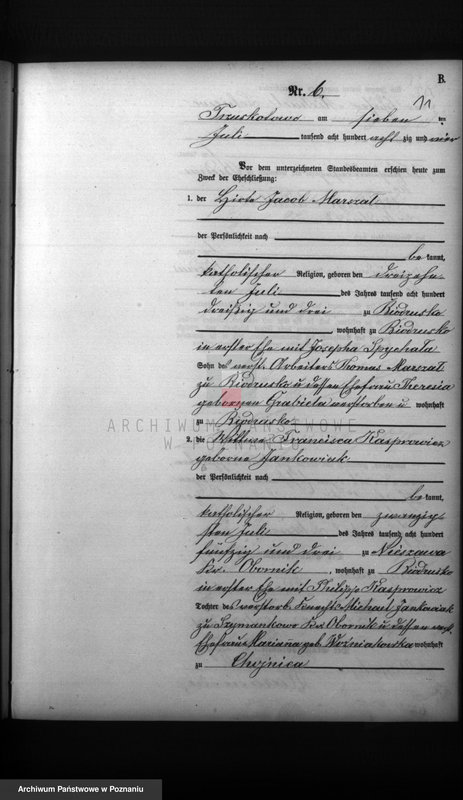 B.
Nr. 6.
11
Truskotowo am sieben ten
Juli tausend acht hundert acht zig und vier
Vor dem unterzeichneten Standesbeamten erschien heute zum
Zweck der Eheschließung:
1. der Hirte Jacob Marszal
der Persönlichkeit nach
be kannt,
katholischer Religion, geboren den dreizehn
ten Juli des Jahres tausend acht hundert
dreißig und drei zu Biedrusko
, wohnhaft zu Biedrusko
in erster Ehe mit Josepha Spychala
Sohn des verst. Arbeiters Thomas Marszal
zu Biedrusko u dessen Ehefrau Theresia
geborgen verstorben u wohnhaft
zu Biedrusko
ARCHIWUM PAŃSTWOWE
W POZNANIU
2. die Wittwe Francisca Kasprowicz
geborne Jankowiak
der Persönlichkeit nach
be kannt,
katholischer Religion, geboren den zwanzig
sten Juli des Jahres tausend acht hundert
fünfzig und drei zu Nieszawa
Kr. Obornik, wohnhaft zu Biedrusko
in erster Ehe mit Philipp Kasprowicz
Tochter des verstorb. Knechts Michael Jankowiak
zu Szymankowo Krs Obornik u dessen
Ehefrau Marianna geb. Woźniakowska wohnhaft
zu Chojnica
Archiwum Państwowe w Poznaniu